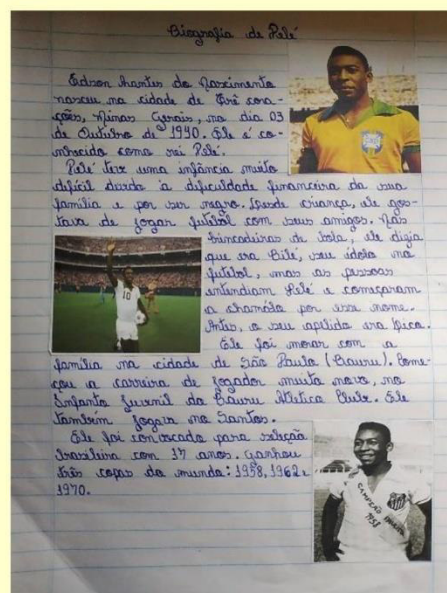 Biografia de Pelé
Edson Arantes do Nascimento
nasceu na cidade de Três cora-
ções, Minas Gerais, no dia 03
de Outubro de 1990. Ele é co-
nhecido como rei Pelé.
Pelé teve uma infância muito
difícil devido à dificuldade financeira da sua
família e por ser negro. Desde criança, ele gos-
tava de jogar futebol com seus amigos. Nas
brincadeiras de bola, ele dizia
que era Bilé, seu ídolo no
futebol, mas as pessoas
entendiam Pelé e começaram
a chamá-lo por esse nome.
Antes, o seu apelido era
Ele foi morar com a
família na cidade de São Paulo (Bauru). Come-
çou a carreira de jogador muito novo, no
Infanto Juvenil do Bauru Atlético Clube. Ele
também jogava no Santos.
Ele foi convocado para seleção
brasileira com 17 anos. Ganhou
três copas do mundo: 1958, 1962 e
1970.
10
CAMPEÃO
1958